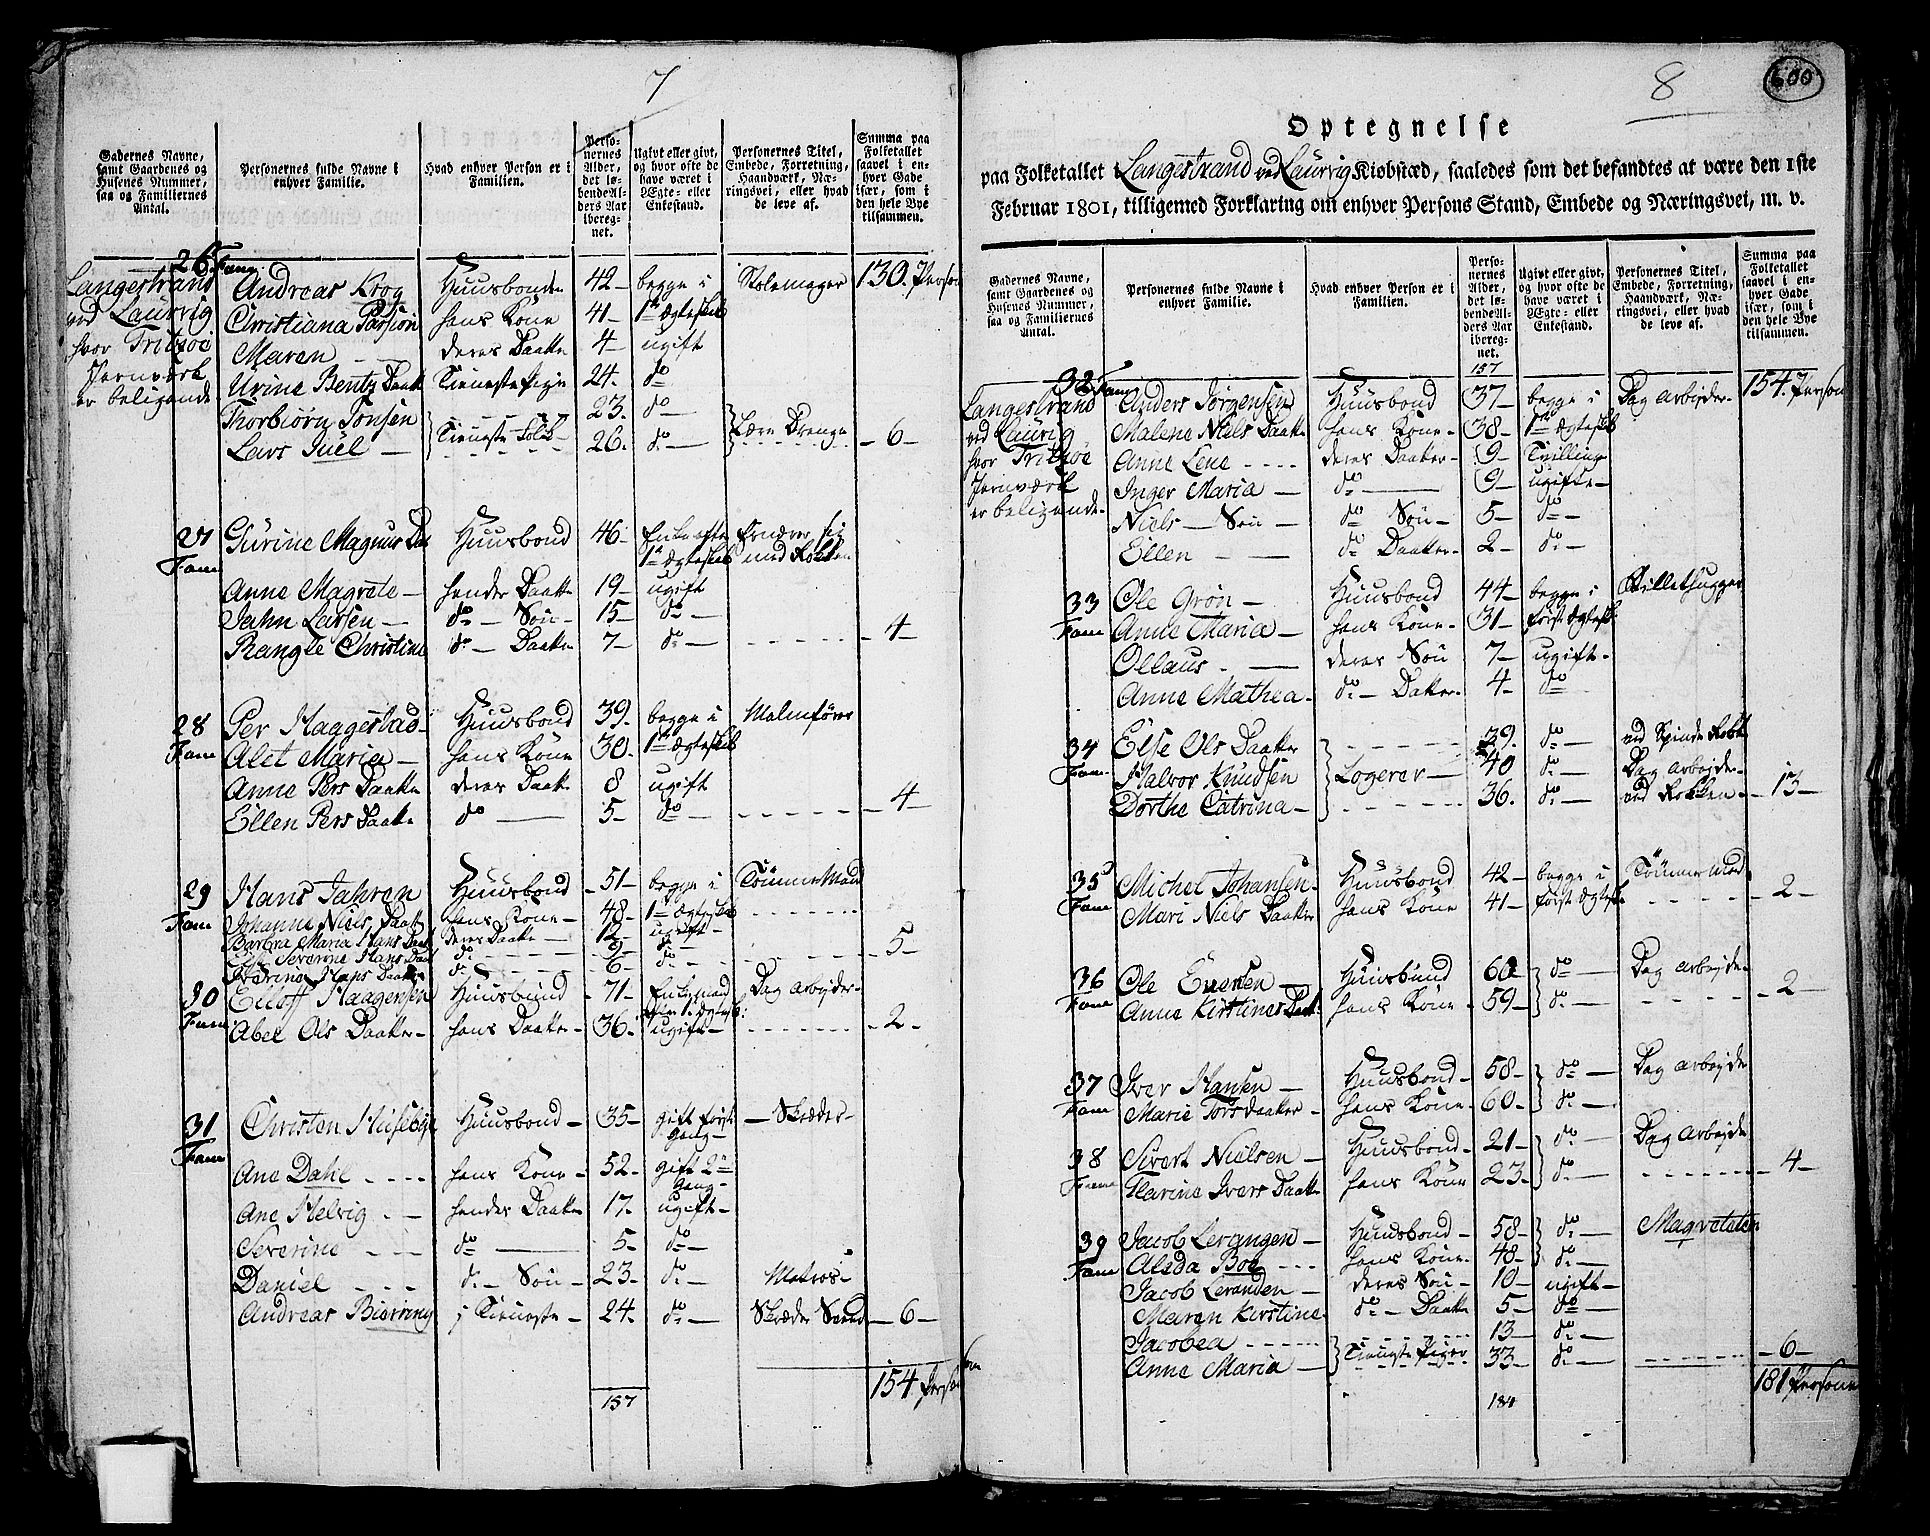 7
Gadernes Navne, samt Gaardenes og Husenes Nummer, saa og Familiernes Antal.
Personernes fulde Navne i enhver Familie.
Hvad enhver Person er i Familien.
Personernes Alder, det løbende Alders Aar iberegnet.
Ugivt eller givt, og hvor ofte de have været i Ægte- eller Enkestand.
Personernes Titel, Embede, Forretning, Haandværk, Næringsvei, eller hvad de leve af.
Summa paa Folketallet saavel i enhver Gade især, som i den hele Bye tilsammen.
Langestrand ved Laurvig hvor Fridzøe Jernværk er beligende
26. Fam. Andreas Krog Huusbonde 42 begge i Stolemager 130. Person
Christiana hans Kone 41 1te Ægteskab
Maren deres Daatter 4 ugift
Urine Bentz Daatt Tieneste Pige 24 do
Thorbiørn Tonsen 23. do
Lars Juel Tieneste Folk 26. do Lære Drenge 6
27 Fam Gurine Magnus Daa Huusbond 46 Enke efter 1te Ægteskab Ernærer sig med Rokken
Anne Magrete hendes Daatter 19 ugift
Jahn Larsen do Søn 15 do
Rangle Christine do Daatter 7 do 4
28 Fam Per Haagestad Huusbond 39 begge i Malmfører
Alet Maria hans Kone 30 1te Ægteskab
Anne Pers Daatter deres Daatt 8 ugift
Ellen Pers Daatter do 5 do 4
29 Fam Hans Jahren Huusbond 51 begge i Tømmer Mand
Johanne Niels Daatt hans Kone 48 1te Ægteskab
Barbra Maria Hans Daatt deres Daatter 12 ugift
Severine Hans Daat do 9 do 5
Hans Daatter do 6 do
30 Fam Haagensen Huusbund 71 Enkemand Dag arbeyder
Abel Ols Daatter hans Daatter 36 ugift 2
31 Fam Christen Husebye Huusbond 35 gift første gang Skræder
Ane Dahl hans Kone 52 gift 2n gang
Ane Helvig hendes Daatter 17 ugift
Severine do 5 do
Daniel do Søn 23 do Matros
Andreas i Tieneste 24 do Skræder Svend 6
157 154 Person
8
600
Optegnelse
paa Folketallet i Langestrand ved Laurvig Kiøbstæd, saaledes som det befandtes at være den 1ste
Februar 1801, tilligemed Forklaring om enhver Persons Stand, Embede og Næringsvei, m. v.
Gadernes Navne, samt Gaardenes og Husenes Nummer, saa og Familiernes Antal.
Personernes fulde Navne i enhver Familie.
Hvad enhver Person er i Familien.
Personernes Alder, det løbende Alders Aar iberegnet.
Ugivt eller givt, og hvor ofte de have været i Ægte- eller Enkestand.
Personernes Titel, Embede, Forretning, Haandværk, Næringsvei, eller hvad de leve af.
Summa paa Folketallet saavel i enhver Gade især, som i den hele Bye tilsammen.
157
Langestrand ved Laurig hvor Fridzøe Jernværk er beligende
32. Fam Anders Jørgensen Huusbond 37 begge i Dag arbejder 154. Person
Malene Niels Daatter hans Kone 38 1te Ægteskab
Anne Lene deres Daatter 9 Tvilling
Inger Maria do 9 ugifte
Niels Søn do Søn 5 do
Ellen do Daatter 2 do
33 Fam Ole Grøn Huusbond 44 begge i Billethugger
Anne Maria hans Kone 31 først Ægtesk
Ollaus deres Søn 7 ugift
Anne Mathea do Datter 4 do
34 Fam Else Ols Daatter 39. do ved Spinde Rokk
Halvor Knudsen Logerer 40 do Dag arbejder
Dorthe Catrina 36. do ved Rokken 13
35 Fam Michel Johansen Huusbond 42 begge i Tømmer Mad
Mari Niels Daatter hans Kone 41 først Ægtesk 2
36 Fam Ole Evensen Huusbund 60 do Dag arbejder
Anne Kirstines Daatt hans Kone 59 do 2
37 Fam Iver Hansen Huusbond 58 do Dag arbejde
Marie Torsdaatter hans Kone 60 do
38 Fam Sivert Nielsen Huusbond 21 do Dag arbejde
Ivers Daatt hans Kone 23 do 4
39 Fam Jacob Lerangen Huusbond 58 do
Alida Boe hans Kone 48 do
Jacob Leranden deres Søn 10 ugift
Maren Kirstine do Daatter 5 do
Jacobea 13 do
Anne Maria Tieneste Piger 33 do 6
184 181 Persone